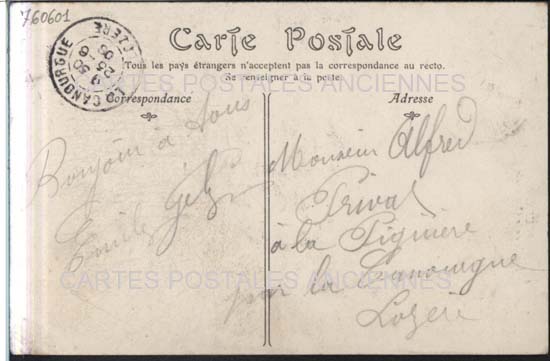 760601
Carte Postale
Tous les pays étrangers n'acceptent pas la correspondance au recto.
Se renseigner à la poste.
LA CANOURGUE
LOZERE
9 50
25 -6
06
Correspondance
Adresse
Bonjour à tous
Emile
Monsieur Alfred
Privat
à la
par la Canourgue
Lozère
CARTES POSTALES ANCIENNES
CARTES POSTALES ANCIENNES